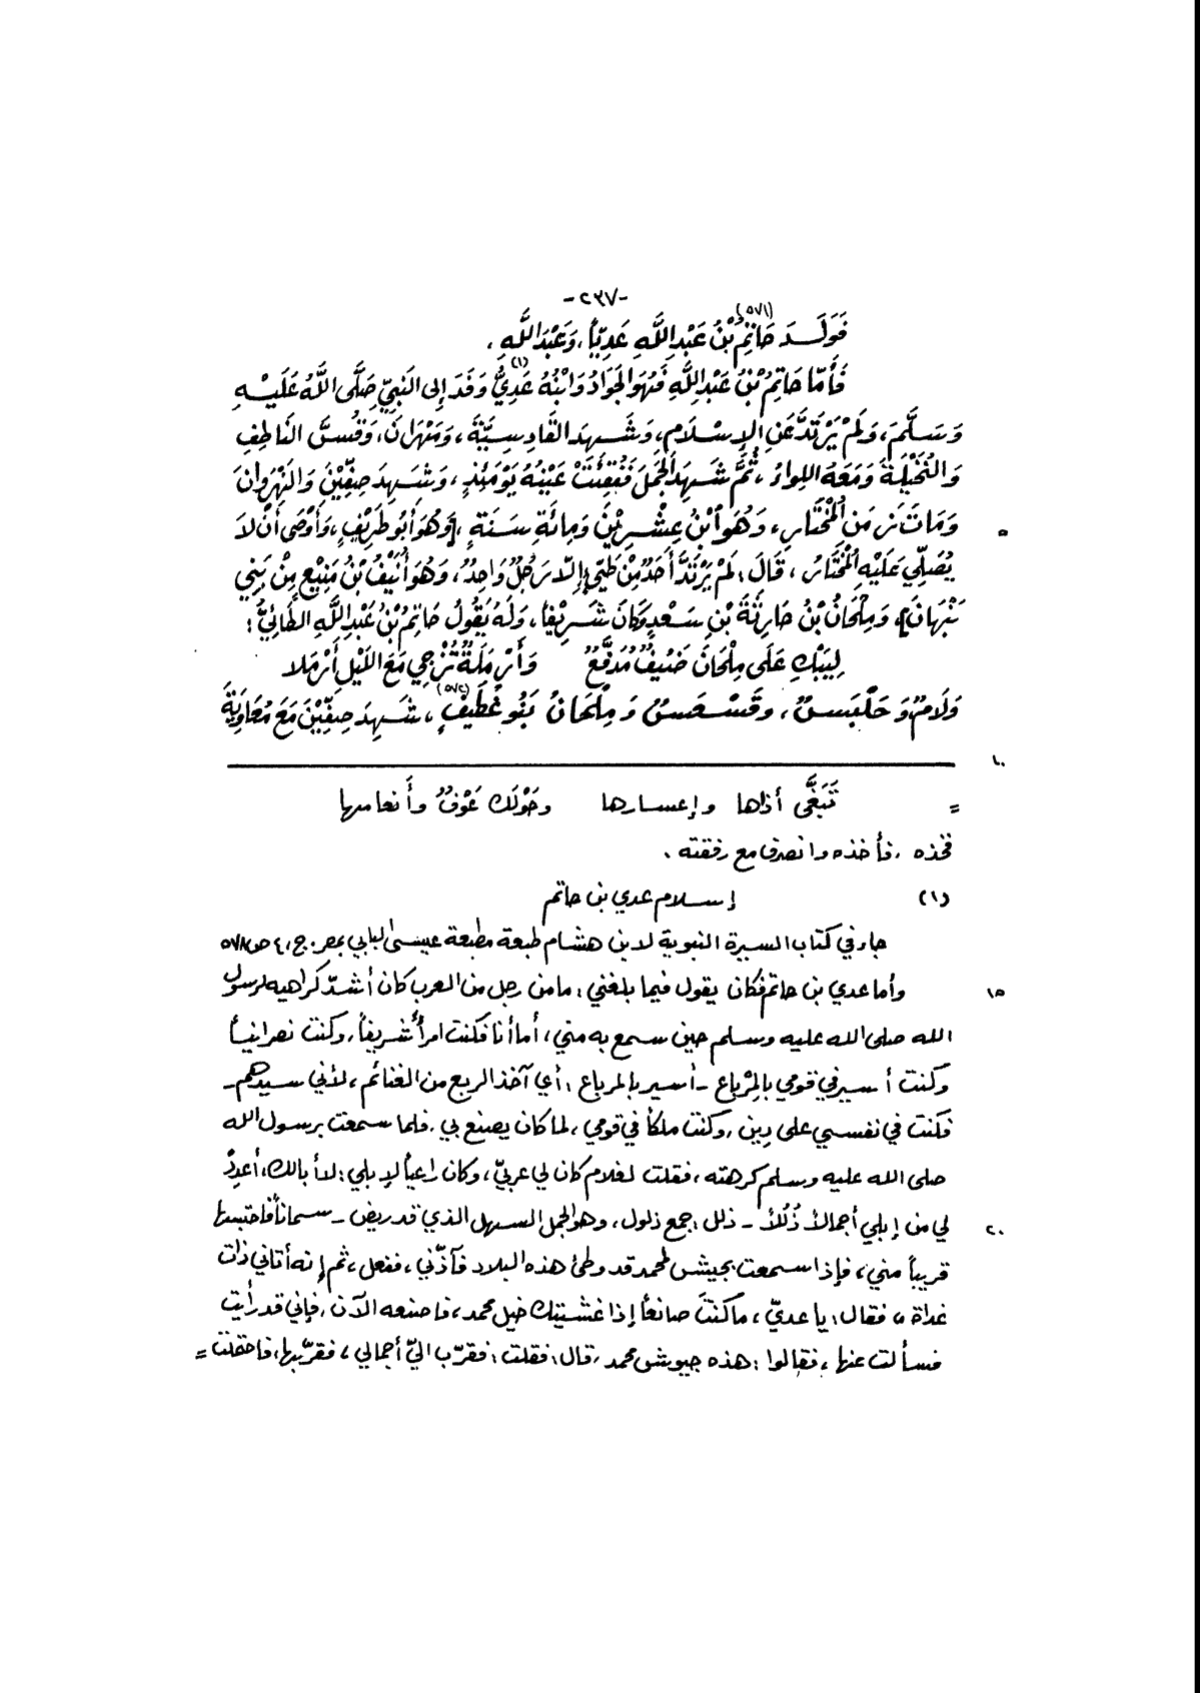 -٢٣٧-
(٥٧١)
فَوَلَــدَ حَاتِمُ بْنُ عَبْدِ اللَّهِ عَدِيّاً، وَعَبْدَ اللَّهِ .
فَأَمَّا حَاتِمُ بْنُ عَبْدِ اللَّهِ فَهُوَ الجَوَادُ وَابْنُهُ عَدِيُّ (١) وَفَدَ إِلى النَّبِيّ صَلَّى اللَّهُ عَلَيْهِ
وَسَلَّمَ، وَلَمْ يَرْتَدَّ عَنِ الإِسْلَامِ، وَشَهِدَ القَادِسِيَّةَ، وَمِهْرَانَ، وَقُسَّ النَّاطِفِ
وَالنُّخَيْلَةَ وَمَعَهُ اللِواءُ، ثُمَّ شَهِدَ الجَمَلَ فَفُقِئَتْ عَيْنُهُ يَوْمَئِذٍ، وَشَهِدَ صِفِّيْنَ وَالنَّهْرَوانَ
٥
وَمَاتَ زَمَنَ المُخْتَارِ، وَهُوَ ابْنُ عِشْرِيْنَ وَمِائَةِ سَنَةٍ، [وَهُوَ أَبُو طَرِيْفٍ، وَأَوْصَى أَنْ لاَ
يُصَلِّي عَلَيْهِ المُخْتَارُ، قَالَ: لَمْ يَرْتَدَّ أَحَدٌ مِنْ طَيِّئٍ إِلاّ رَجُلٌ وَاحِدٌ، وَهُوَ أُنَيْفُ بْنُ مَنِيْعٍ مِنْ بَنِي
نَبْهَانَ]، وَمِلْحَانُ بْنُ حَارِثَةَ بْنِ سَعْدٍ وَكَانَ شَرِيْفاً، وَلَهُ يَقُولُ حَاتِمُ بْنُ عَبْدِ اللَّهِ الطَّائِيُّ:
لِيَبْكِ عَلَى مِلْحَانَ ضَيْفٌ مُدَفَّعٌ وَأَرْمَلَةٌ تُزْجِي مَعَ اللَّيْلِ أَرْمَلا
وَلَامٌ وَحَلْبَسٌ، وقَسْعَسُ وَمِلْحَانُ بَنُو غُطَيْفٍ (٥٧٢)، شَهِدَ صِفِّيْنَ مَعَ مُعَاوِيَةَ
١٠
= تَبَغَّى أذاها وإعسارها وحَوْلَك عَوْفٌ وأَنعامها
فخذه، فأخذه وانصرف مع رفقته.
(١) إسلام عدي بن حاتم
جاء في كتاب السيرة النبوية لابن هشام طبعة مطبعة عيسى البابي بمصر. ج: ٤ ص: ٥٧٨
١٥
وأما عدي بن حاتم فكان يقول فيما بلغني: ما من رجل من العرب كان أشدّ كراهيه لرسول
الله صلى الله عليه وسلم حين سمع به مني، أما أنا فكنت امرأً شريفاً، وكنت نصرانياً
وكنت أسير في قومي بالمِرْباع - أسير بالمرباع: أي آخذ الربع من الغنائم، لأني سيدهم -
فكنت في نفسي على دِين، وكنت ملكاً في قومي، لما كان يصنع بي. فلما سمعت برسول الله
صلى الله عليه وسلم كرهته، فقلت لغلام كان لي عربيّ، وكان راعياً لإبلي: لا أبالك، أعدِدْ
٢٠
لي من إبلي أجمالاً ذُلُلاً - ذلل: جمع ذلول، وهو الجمل السهل الذي قد ريض - سماناً فاحتبسها
قريباً مني، فإذا سمعت بجيش لمحمد قد وطئ هذه البلاد فآذّني، ففعل، ثم إنه أتاني ذات
غداة، فقال: يا عديّ، ما كنتَ صانعاً إذا غشيتك خيل محمد، فاصنعه الآن، فإني قد رأيت
فسألت عنها، فقالوا: هذه جيوش محمد. قال: فقلت: فقرّب اليّ أجمالي، فقرّبها، فاحتملت =